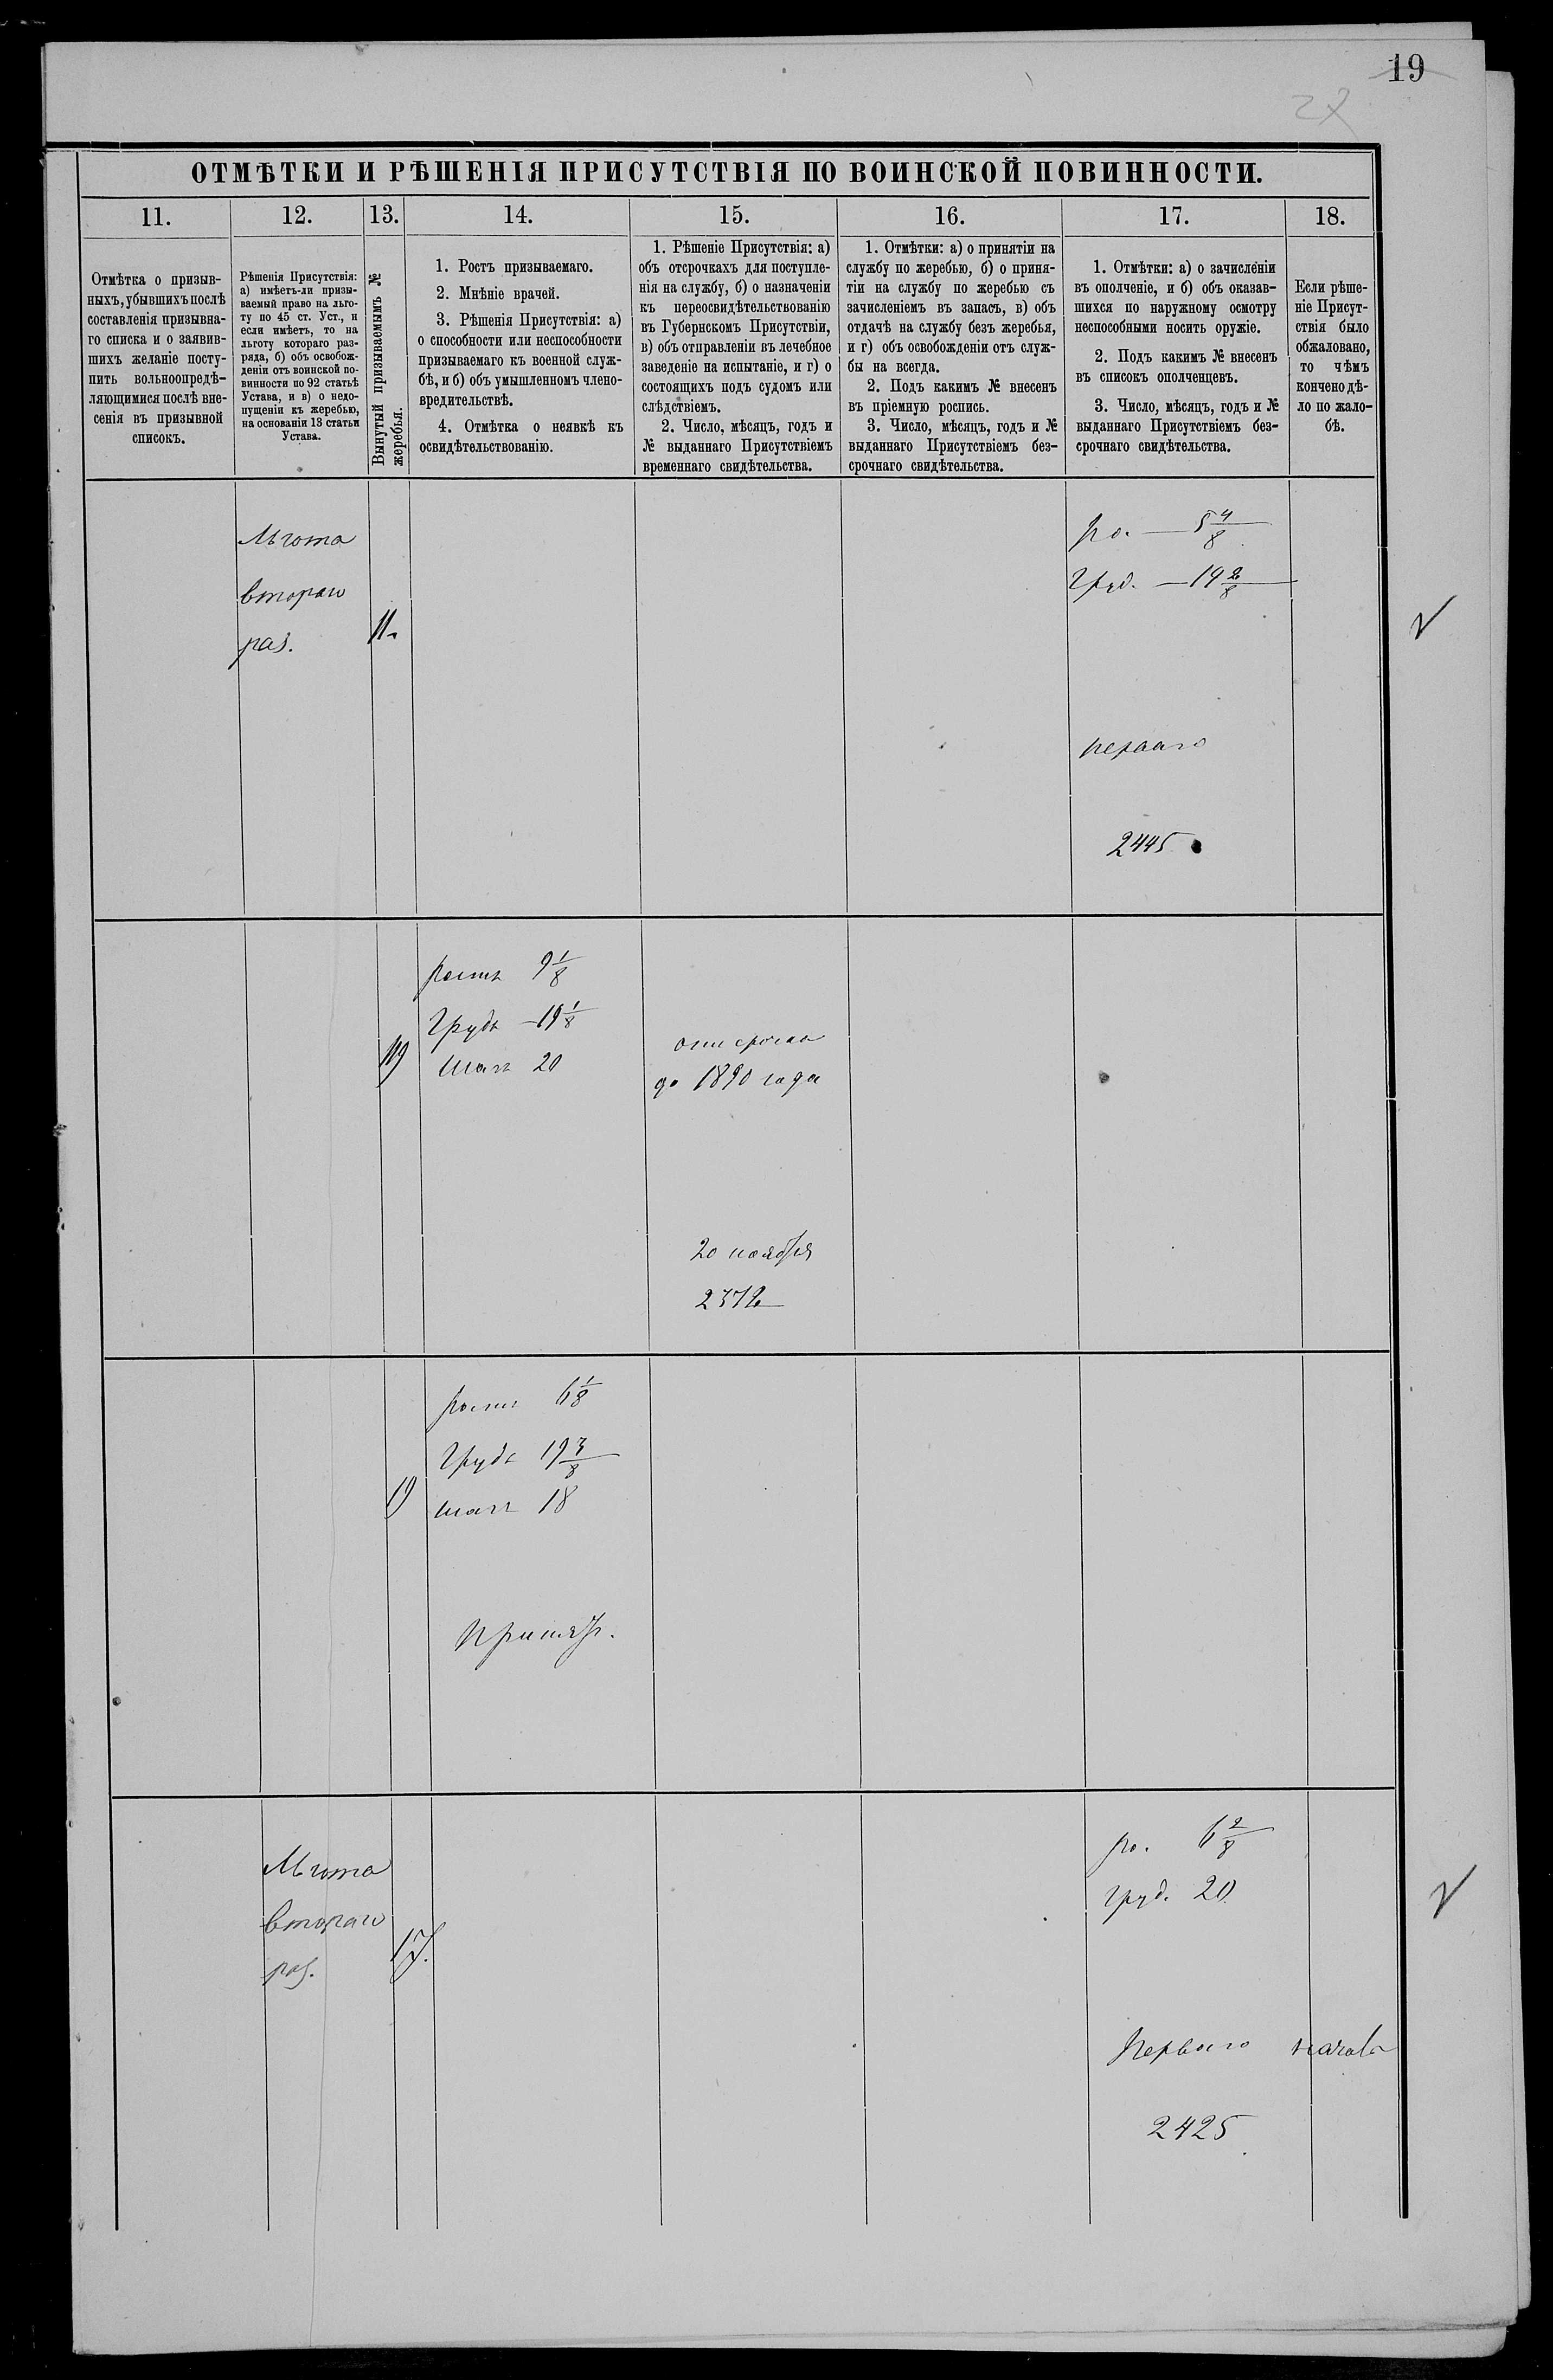 19
ОТМѢТКИ И РѢШЕНІЯ ПРИСУТСТВІЯ ПО ВОИНСКОЙ ПОВИННОСТИ.
11.
12.
13.
14.
15.
16.
17.
18.
Отмѣтка о призыв-
ныхъ, убывшихъ послѣ
составленія призывна-
го списка и о заявив-
шихъ желаніе посту-
пить вольноопредѣ-
ляющимися послѣ вне-
сенія въ призывной
списокъ.
Рѣшенія Присутствія:
а) имѣетъ-ли призы-
ваемый право на льго-
ту по 45 ст. Уст., и
если имѣетъ, то на
льготу котораго раз-
ряда, б) объ освобож-
деніи отъ воинской по-
винности по 92 статьѣ
Устава, и в) о недо-
пущеніи къ жеребью,
на основаніи 13 статьи
Устава.
Вынутый призываемымъ №
жеребья.
1. Ростъ призываемаго.
2. Мнѣніе врачей.
3. Рѣшенія Присутствія: а)
о способности или неспособности
призываемаго къ военной служ-
бѣ, и б) объ умышленномъ члено-
вредительствѣ.
4. Отмѣтка о неявкѣ къ
освидѣтельствованію.
1. Рѣшеніе Присутствія: а)
объ отсрочкахъ для поступле-
нія на службу, б) о назначеніи
къ переосвидѣтельствованію
въ Губернскомъ Присутствіи,
в) объ отправленіи въ лечебное
заведеніе на испытаніе, и г) о
состоящихъ подъ судомъ или
слѣдствіемъ.
2. Число, мѣсяцъ, годъ и
№ выданнаго Присутствіемъ
временнаго свидѣтельства.
1. Отмѣтки: а) о принятіи на
службу по жеребью, б) о приня-
тіи на службу по жеребью съ
зачисленіемъ въ запасъ, в) объ
отдачѣ на службу безъ жеребья,
и г) объ освобожденіи отъ служ-
бы на всегда.
2. Подъ какимъ № внесенъ
въ пріемную роспись.
3. Число, мѣсяцъ, годъ и №
выданнаго Присутствіемъ без-
срочнаго свидѣтельства.
1. Отмѣтки: а) о зачисленіи
въ ополченіе, и б) объ оказав-
шихся по наружному осмотру
неспособными носить оружіе.
2. Подъ какимъ № внесенъ
въ списокъ ополченцевъ.
3. Число, мѣсяцъ, годъ и №
выданнаго Присутствіемъ без-
срочнаго свидѣтельства.
Если рѣше-
ніе Присут-
ствія было
обжаловано,
то чѣмъ
кончено дѣ-
ло по жало-
бѣ.
Льгота
втораго
раз.
11.
ро. — 5 4/8
Груд. — 19 2/8
перваго
2445
ростъ 9 1/8
Грудь — 19 1/8
шагъ 20
отсрочка
до 1890 года
20 ноября
2372
ростъ 6 1/8
Грудь 19 3/8
шагъ 18
Льгота
втораго
раз.
17.
ро. 6 2/8
груд. 20
Перваго
2425